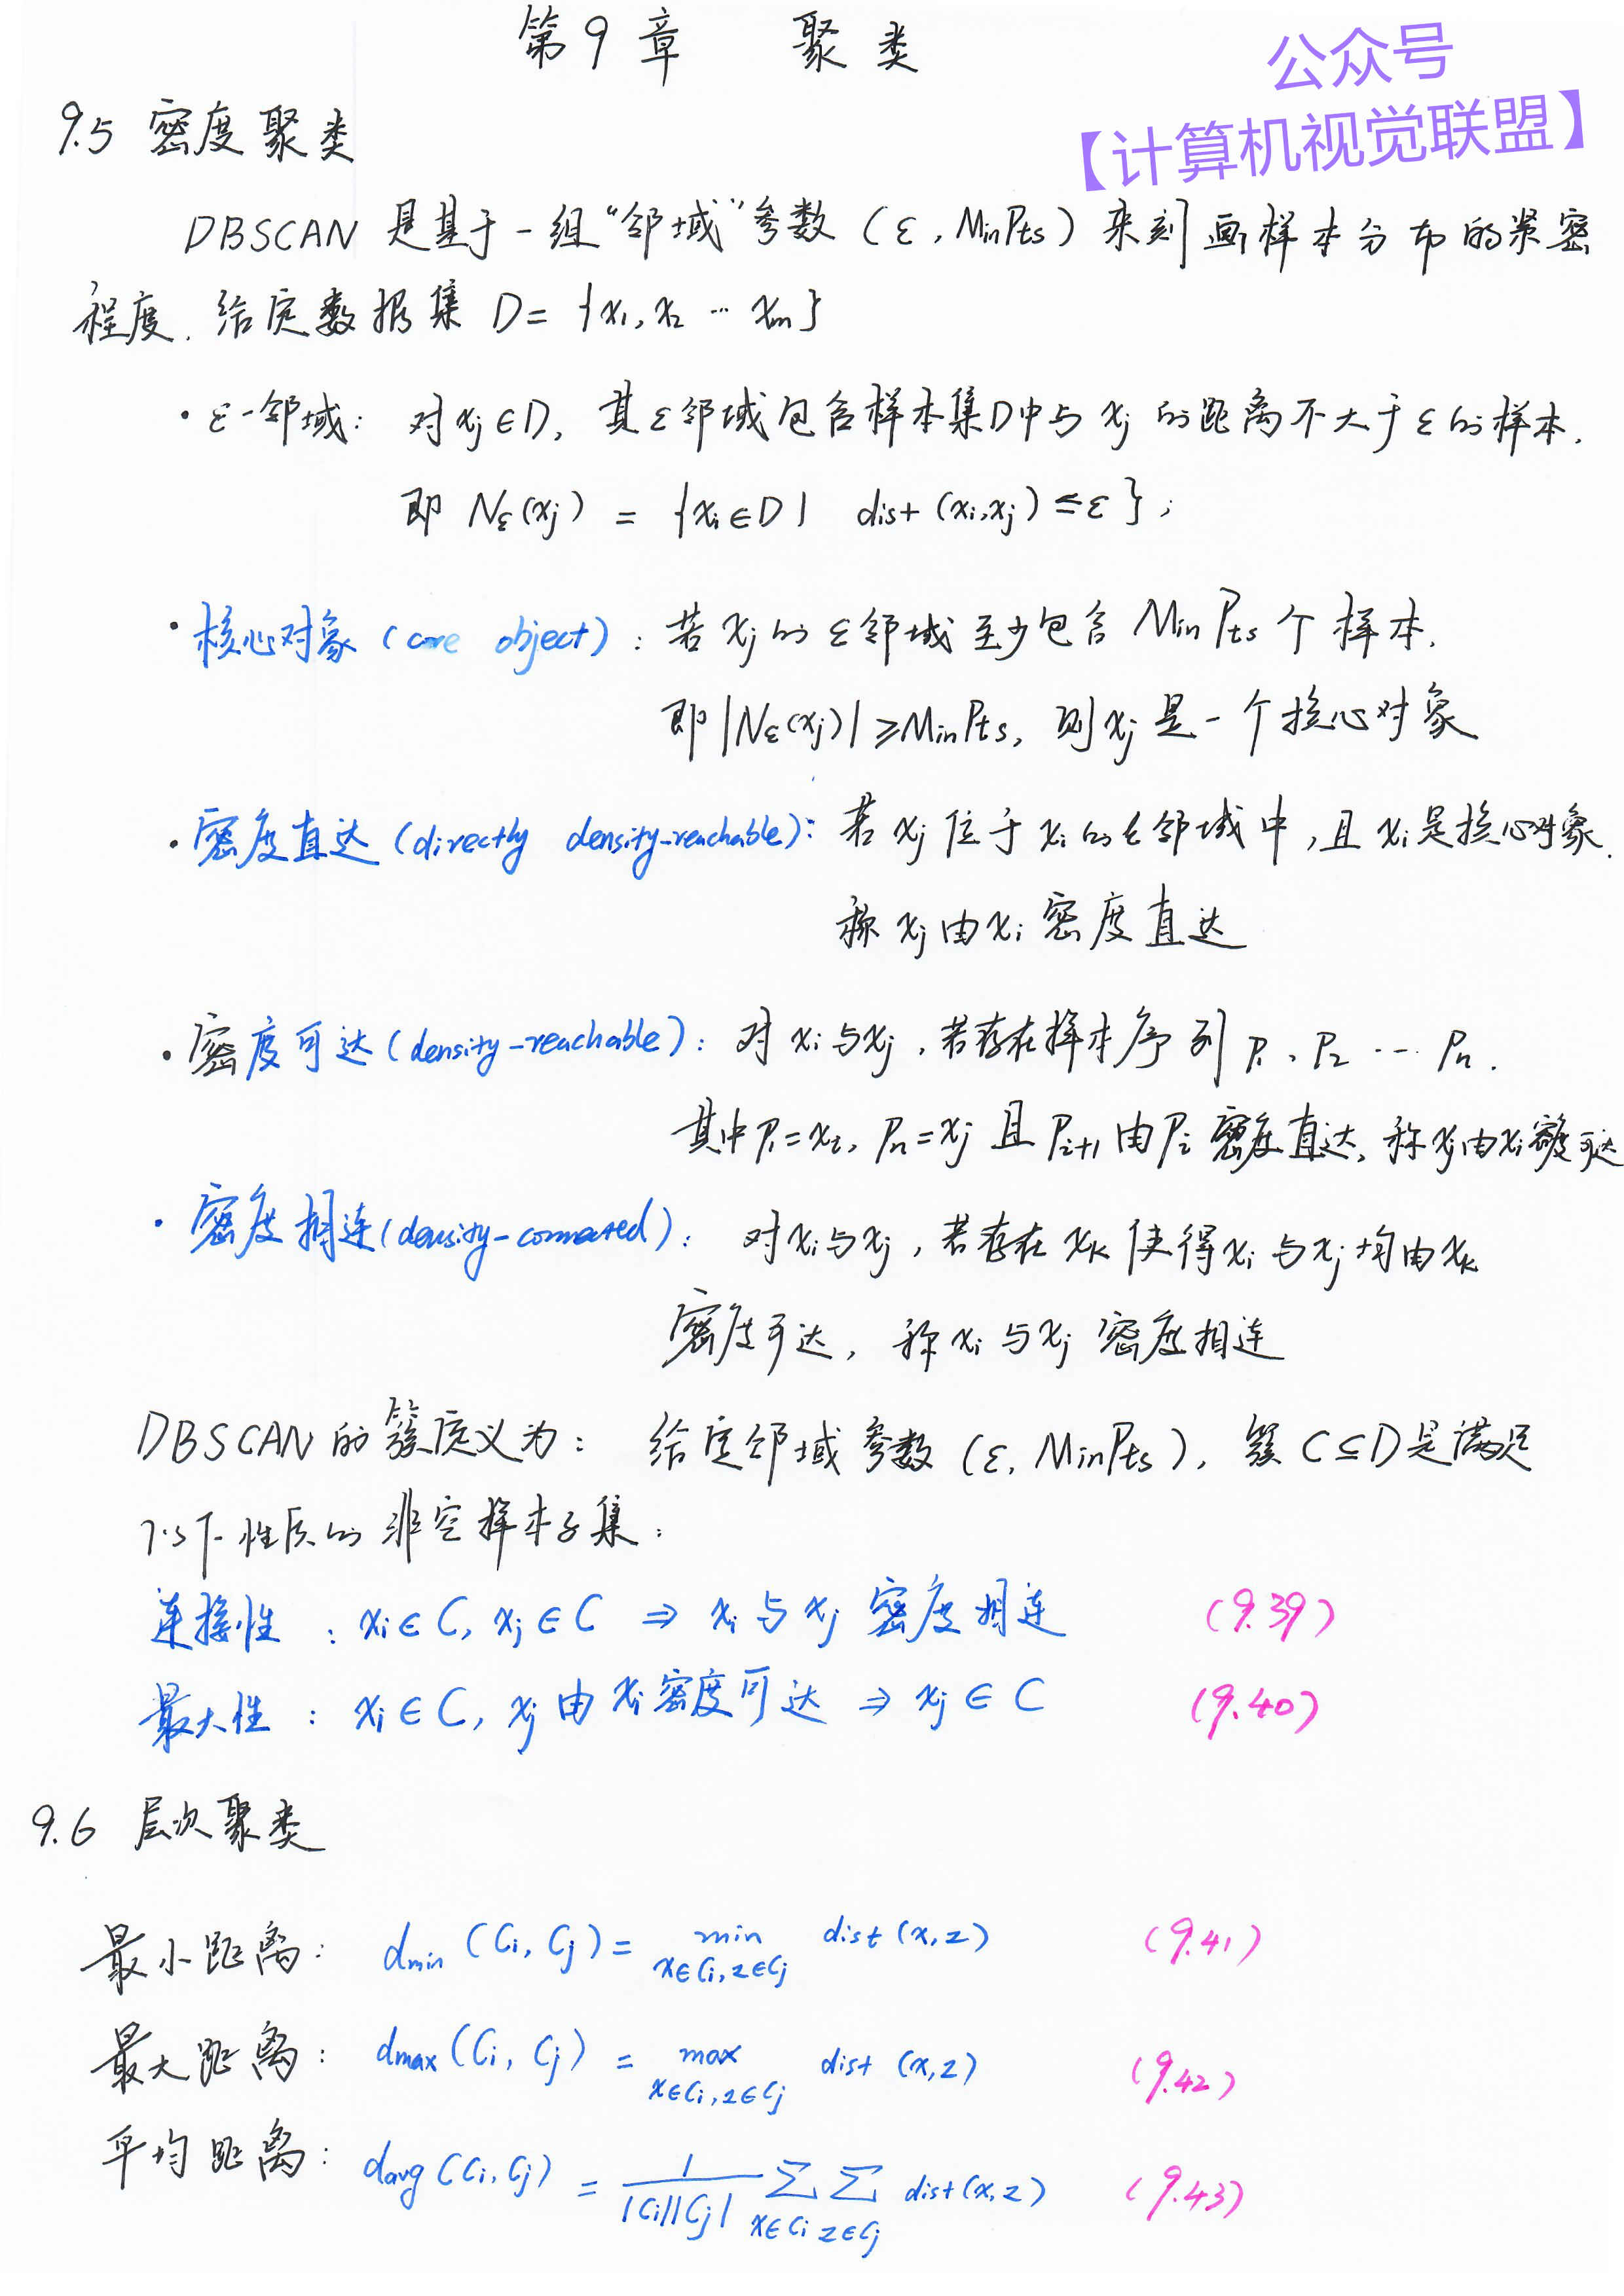 第9章 聚类
公众号
【计算机视觉联盟】
9.5 密度聚类
DBSCAN 是基于一组“邻域”参数 (ε, MinPts) 来刻画样本分布的紧密
程度. 给定数据集 D = {x₁, x₂ … xₘ}
· ε-邻域: 对 xⱼ∈D, 其ε邻域包含样本集D中与 xⱼ 的距离不大于ε的样本.
即 Nε(xⱼ) = {xᵢ∈D | dist (xᵢ,xⱼ) ≤ε};
· 核心对象 (core object): 若 xⱼ 的 ε邻域至少包含 MinPts 个样本.
即 |Nε(xⱼ)| ≥MinPts, 则 xⱼ 是一个核心对象
· 密度直达 (directly density-reachable): 若 xⱼ 位于 xᵢ 的ε邻域中, 且 xᵢ 是核心对象.
称 xⱼ 由 xᵢ 密度直达
· 密度可达 (density-reachable): 对 xᵢ 与 xⱼ, 若存在样本序列 P₁、P₂ … Pₙ.
其中 P₁=xᵢ, Pₙ=xⱼ 且 Pᵢ₊₁ 由 Pᵢ 密度直达, 称 xⱼ 由 xᵢ 密度可达
· 密度相连 (density-connected): 对 xᵢ 与 xⱼ, 若存在 xₖ 使得 xᵢ 与 xⱼ 均由 xₖ
密度可达, 称 xᵢ 与 xⱼ 密度相连
DBSCAN 的簇定义为: 给定邻域参数 (ε, MinPts), 簇 C⊆D 是满足
以下性质的非空样本子集:
连接性 : xᵢ∈C, xⱼ∈C ⇒ xᵢ 与 xⱼ 密度相连 (9.39)
最大性 : xᵢ∈C, xⱼ 由 xᵢ 密度可达 ⇒ xⱼ∈C (9.40)
9.6 层次聚类
最小距离: dmin (Cᵢ, Cⱼ) = min dist (x,z) (9.41)
x∈Cᵢ, z∈Cⱼ
最大距离: dmax (Cᵢ, Cⱼ) = max dist (x,z) (9.42)
x∈Cᵢ, z∈Cⱼ
平均距离: davg (Cᵢ, Cⱼ) = 1/|Cᵢ||Cⱼ| ∑ ∑ dist(x,z) (9.43)
x∈Cᵢ z∈Cⱼ